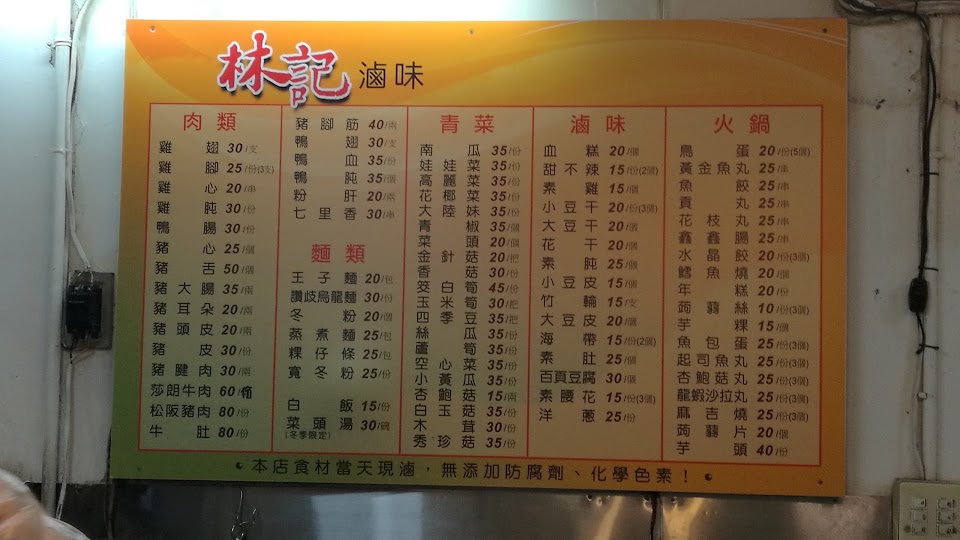 林記 滷味
肉類
雞翅 30/支
雞腳 25/份(3支)
雞心 20/串
雞肫 30/份
鴨腸 30/份
豬心 25/個
豬舌 50/個
豬大腸 35/兩
豬耳朵 20/兩
豬頭皮 20/兩
豬皮 30/份
豬腱肉 30/兩
莎朗牛肉 60/
松阪豬肉 80/份
牛肚 80/份
豬腳筋 40/兩
鴨翅 30/支
鴨血 35/份
鴨肫 35/個
粉肝 20/兩
七里香 30/串
麵類
王子麵 20/包
讚歧烏龍麵 30/份
冬粉 20/個
蒸煮麵 25/包
粿仔條 25/包
寬冬粉 25/份
白飯 15/份
菜頭湯 30/碗
(冬季限定)
青菜
南瓜 35/份
娃娃菜 35/份
高麗菜 35/份
花椰菜 35/份
大陸妹 35/份
青椒 35/個
菜頭 20/個
金針菇 20/把
香菇 30/份
筊白筍 45/份
玉米筍 30/把
四季豆 35/把
絲瓜 35/份
蘆筍 35/份
空心菜 35/份
小黃瓜 35/份
杏鮑菇 15/兩
白玉菇 35/份
木茸 30/份
秀珍菇 35/份
滷味
血糕 20/個
甜不辣 15/份(2個)
素雞 15/個
小豆干 20/份(3個)
大豆干 20/個
花干 20/個
素肫 25/個
小豆皮 15/個
竹輪 15/支
大豆皮 20/個
海帶 15/份(2個)
素肚 25/個
百頁豆腐 30/個
素腰花 15/份(3個)
洋蔥 25/份
火鍋
鳥蛋 20/份(5個)
黃金魚丸 25/串
魚餃 25/串
貢丸 25/串
花枝丸 25/串
鑫鑫腸 25/串
水晶餃 20/份(3個)
鱈魚燒 20/個
年糕 20/份
蒟蒻絲 10/份(3個)
芋粿 15/個
魚包蛋 25/份(3個)
起司魚丸 25/份(3個)
杏鮑菇丸 25/份(3個)
龍蝦沙拉丸 25/份(3個)
麻吉燒 25/份(3個)
蒟蒻片 20/個
芋頭 40/份
•本店食材當天現滷，無添加防腐劑、化學色素！•